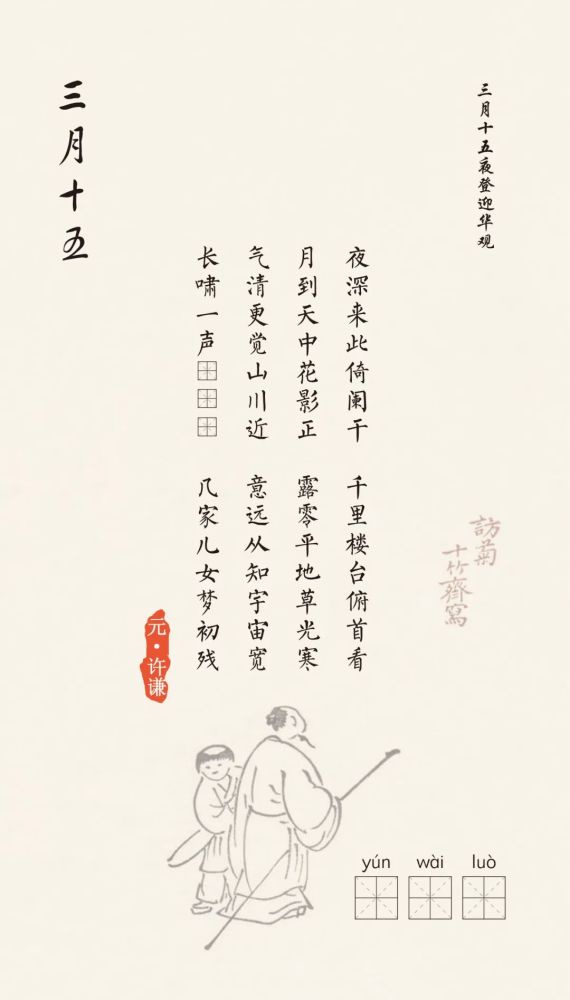 三月十五
三月十五夜登迎华观
夜深来此倚阑干 千里楼台俯首看
月到天中花影正 露零平地草光寒
气清更觉山川近 意远从知宇宙宽
长啸一声 几家儿女梦初残
元·许谦
訪菊
十竹齋寫
yún wài luò